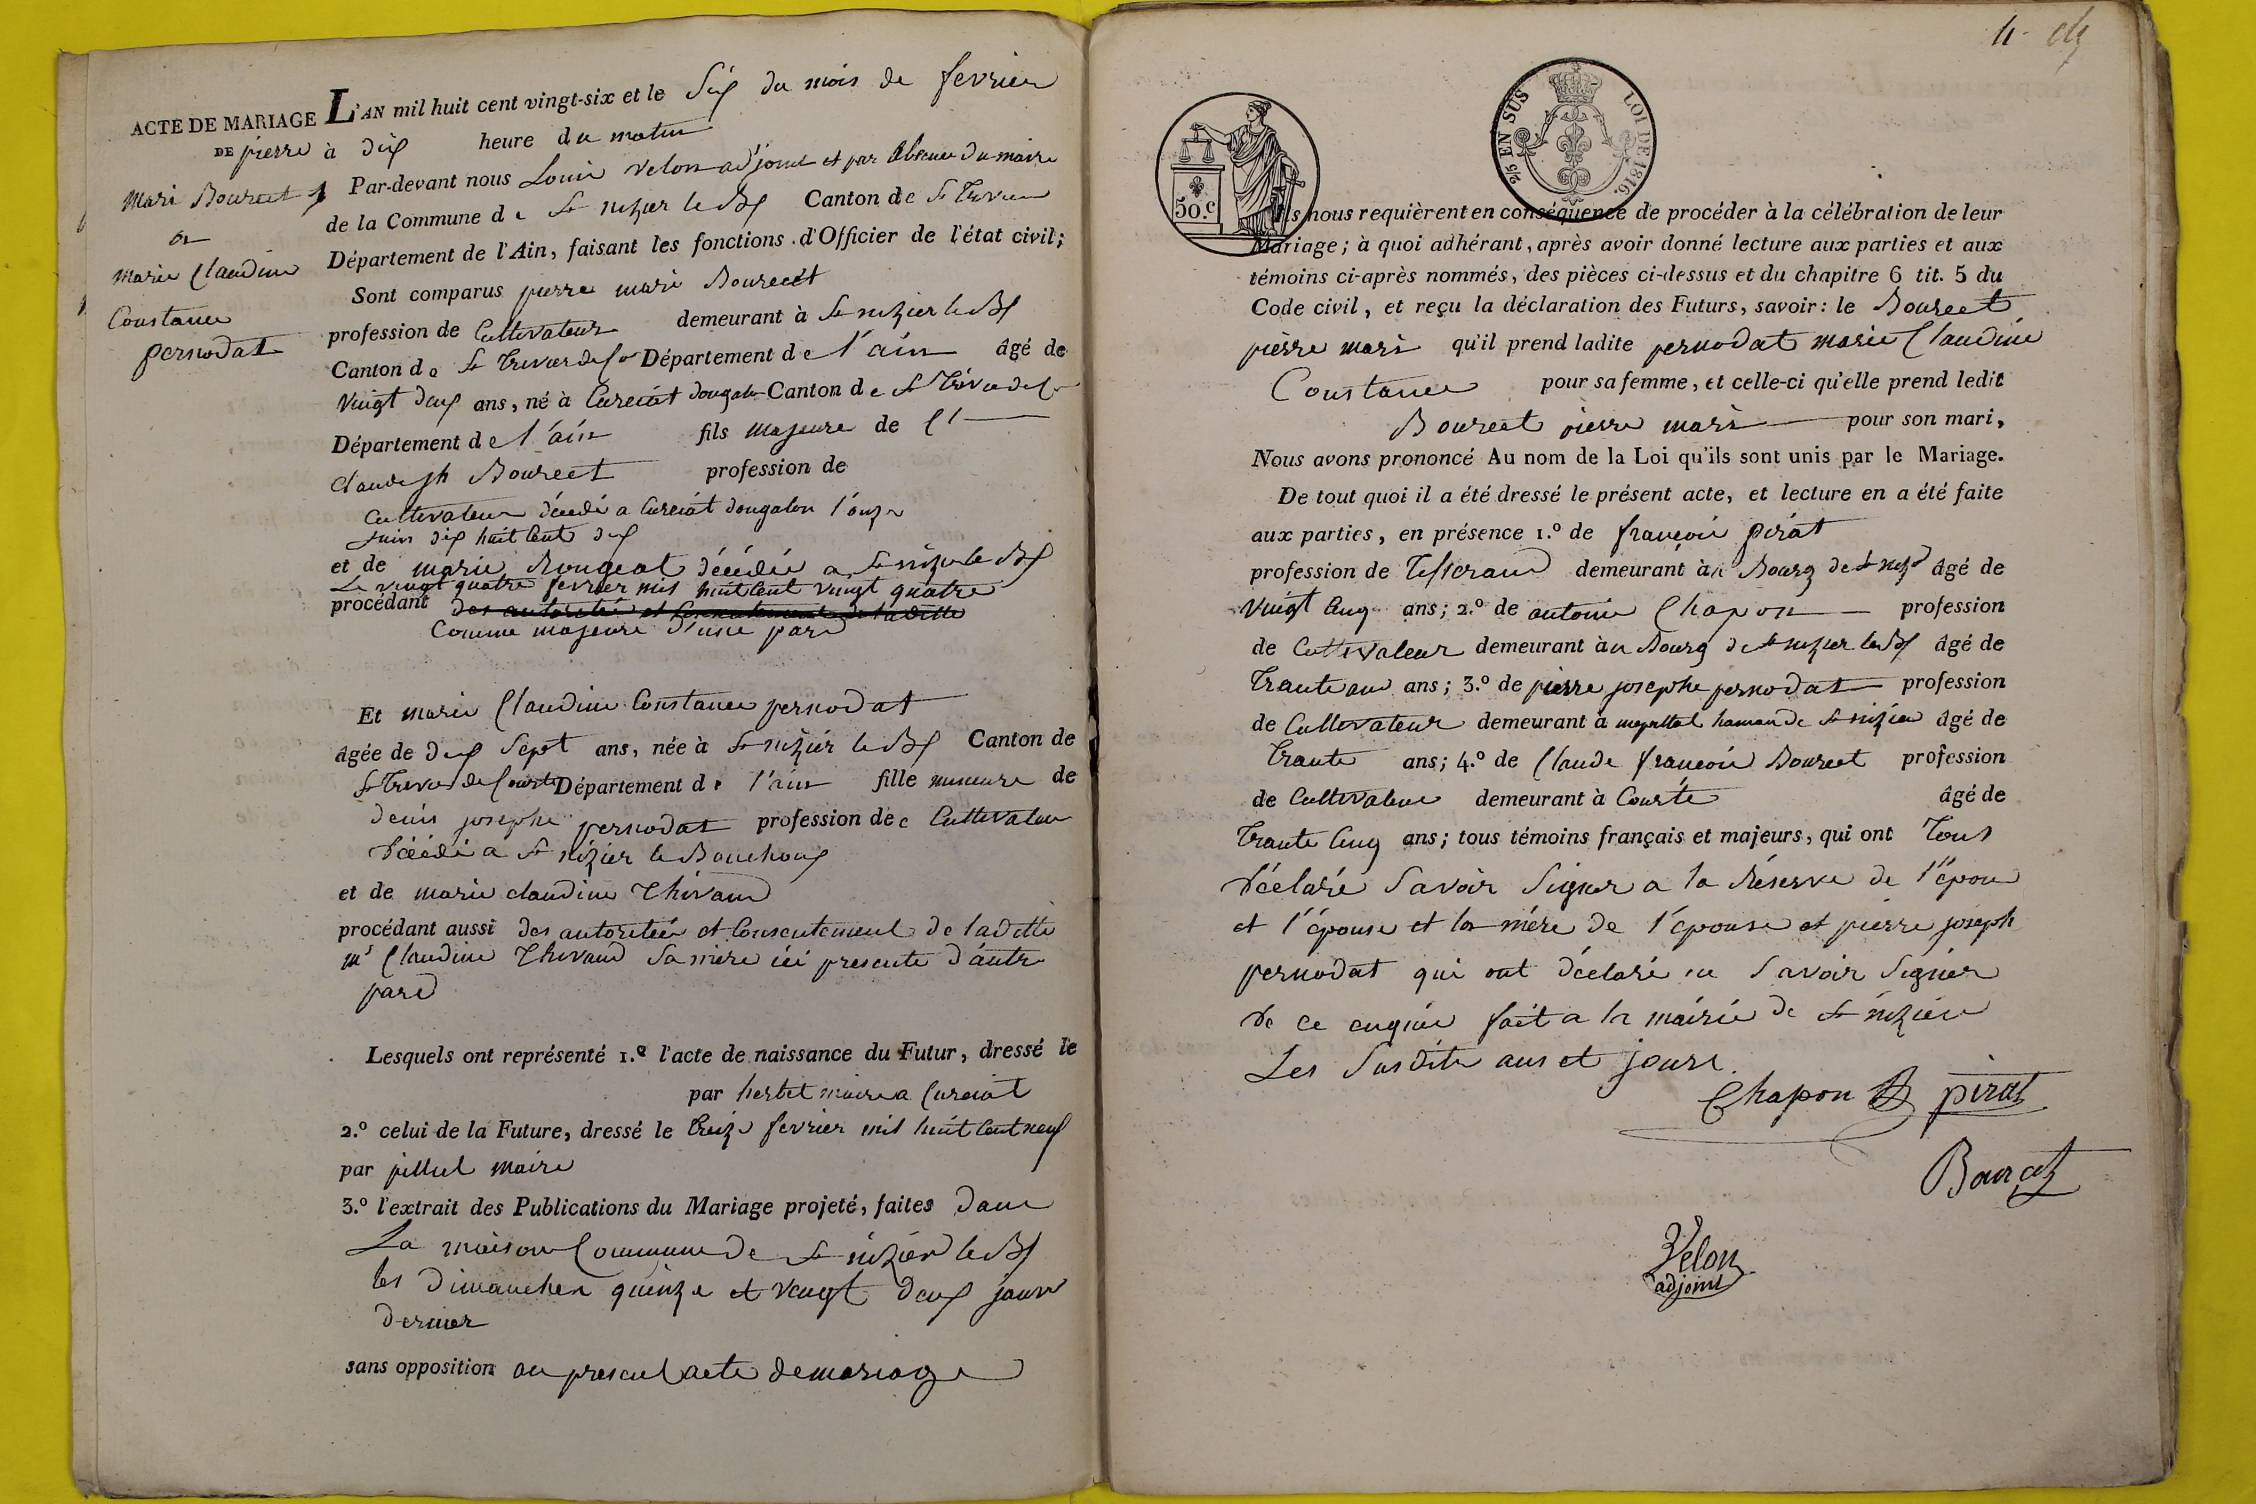 ACTE DE MARIAGE
DE pierre
Mari Bourcet
et
Marie Claudine
Constance
pernodat
L'AN mil huit cent vingt-six et le Six du mois de fevrier
à dix heure du matin
Par-devant nous Louis Velon adjoint et par absence du maire
de la Commune de St nizier le Bx Canton de St Trivier
Département de l'Ain, faisant les fonctions d'Officier de l'état civil;
Sont comparus pierre mari Bourcet
profession de Cultivateur demeurant à St nizier le Bx
Canton de St Trivier de Co Département de l'ain âgé de
vingt deux ans, né à Curciat dongalon Canton de St Trivier de C
Département de l'ain fils majeure de
Claude jh Bourcet profession de
Cultivateur décédé a Curciat dongalon l'onze
Juin dix huit cent dix
et de marie Rougeat décédée a St nizier le Bx
Le vingt quatre fevrier mil huit cent vingt quatre
procédant des autoritée et Consentement de laditte
Comme majeure d'une pard
Et marie Claudine Constance pernodat
âgée de dix Sept ans, née à St nizier le Bx Canton de
St Trivier de Courte Département de l'ain fille mineure de
denis josephe pernodat profession de Cultivateur
décédé a St nizier le Bouchoux
et de marie claudine Thivaud
procédant aussi des autoritée et Consentement de laditte
me Claudine Thivaud Sa mère ici presente d'autre
pard
Lesquels ont représenté 1.º l'acte de naissance du Futur, dressé le
par herbet maire a Curciat
2.º celui de la Future, dressé le treize fevrier mil huit Cent neuf
par maire
3.º l'extrait des Publications du Mariage projeté, faites dans
La maison Commune de St nizier le Bx
les dimanches quinze et vingt deux janvr
dernier
sans opposition au present acte de mariage
4
50.C
25 EN SUS LOI DE 1816.
Ils nous requièrent en conséquence de procéder à la célébration de leur
Mariage; à quoi adhérant, après avoir donné lecture aux parties et aux
témoins ci-après nommés, des pièces ci-dessus et du chapitre 6 tit. 5 du
Code civil, et reçu la déclaration des Futurs, savoir: le Bourcet
pierre mari qu'il prend ladite pernodat marie Claudine
Constance pour sa femme, et celle-ci qu'elle prend ledit
Bourcet pierre mari pour son mari,
Nous avons prononcé Au nom de la Loi qu'ils sont unis par le Mariage.
De tout quoi il a été dressé le présent acte, et lecture en a été faite
aux parties, en présence 1.º de françois pirat
profession de Tisserand demeurant à Bourg de St nizr âgé de
Vingt Cinq ans; 2.º de antoine Chapon profession
de Cultivateur demeurant à u Bourg de St nizier le Bx âgé de
Trante ans; 3.º de pierre josephe pernodat profession
de Cultivateur demeurant à hamau de St nizier âgé de
Trante ans; 4.º de Claude françois Bourcet profession
de Cultivateur demeurant à Courte âgé de
Trante Cinq ans; tous témoins français et majeurs, qui ont Tous
déclaré Savoir Signer a la Réserve de l'époux
et l'épouse et la mère de l'épouse et pierre joseph
pernodat qui ont déclaré ne Savoir Signer
de ce enquie fait a la mairie de St nizier
Les Susdits ans et jours
Chapon pirat
Bourcet
Velon
adjoint